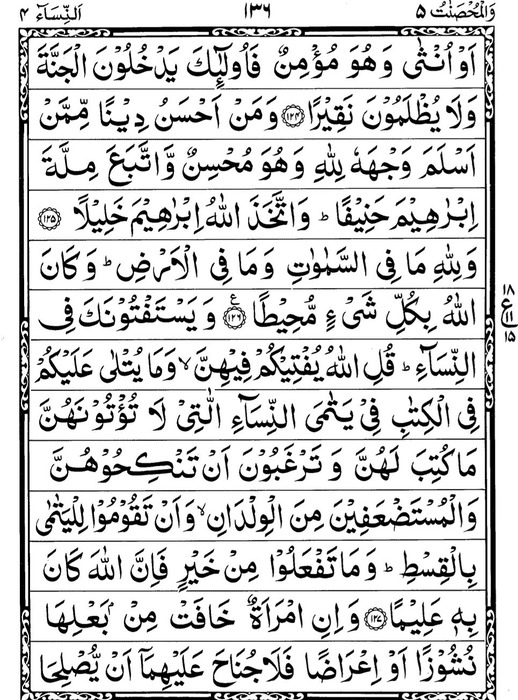 وَالْمُحْصَنٰتُ ۵ ۱۳۶ اَلنِّسَآء ۴
اَوْ اُنْثٰی وَهُوَ مُؤْمِنٌ فَاُولٰٓئِكَ يَدْخُلُوْنَ الْجَنَّةَ
وَلَا يُظْلَمُوْنَ نَقِيْرًا ﴿۱۲۴﴾ وَمَنْ اَحْسَنُ دِيْنًا مِّمَّنْ
اَسْلَمَ وَجْهَهٗ لِلّٰهِ وَهُوَ مُحْسِنٌ وَّاتَّبَعَ مِلَّةَ
اِبْرٰهِيْمَ حَنِيْفًا ؕ وَاتَّخَذَ اللّٰهُ اِبْرٰهِيْمَ خَلِيْلًا ﴿۱۲۵﴾
وَلِلّٰهِ مَا فِی السَّمٰوٰتِ وَمَا فِی الْاَرْضِ ؕ وَكَانَ
اللّٰهُ بِكُلِّ شَیْءٍ مُّحِيْطًا ﴿۱۲۶﴾ ع وَيَسْتَفْتُوْنَكَ فِی
۱۸
ع ۱۱
۱۵
النِّسَآءِ ؕ قُلِ اللّٰهُ يُفْتِيْكُمْ فِيْهِنَّ ۙ وَمَا يُتْلٰی عَلَيْكُمْ
فِی الْكِتٰبِ فِیْ يَتٰمَی النِّسَآءِ الّٰتِیْ لَا تُؤْتُوْنَهُنَّ
مَا كُتِبَ لَهُنَّ وَتَرْغَبُوْنَ اَنْ تَنْكِحُوْهُنَّ
وَالْمُسْتَضْعَفِيْنَ مِنَ الْوِلْدَانِ ۙ وَاَنْ تَقُوْمُوْا لِلْيَتٰمٰی
بِالْقِسْطِ ؕ وَمَا تَفْعَلُوْا مِنْ خَيْرٍ فَاِنَّ اللّٰهَ كَانَ
بِهٖ عَلِيْمًا ﴿۱۲۷﴾ وَاِنِ امْرَاَةٌ خَافَتْ مِنْۢ بَعْلِهَا
نُشُوْزًا اَوْ اِعْرَاضًا فَلَا جُنَاحَ عَلَيْهِمَاۤ اَنْ يُّصْلِحَا